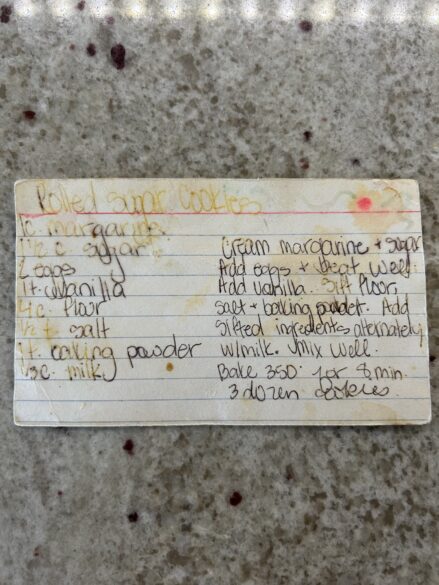 Rolled Sugar Cookies
1c margarine
1½ c sugar
2 eggs
1t vanilla
4c. flour
½ t salt
1t. baking powder
⅓c. milk
Cream margarine + sugar
Add eggs + beat well.
Add vanilla. Sift flour,
salt + baking powder. Add
sifted ingredients alternately
w/milk. Mix well.
Bake 350 for 8 min.
3 dozen cookies